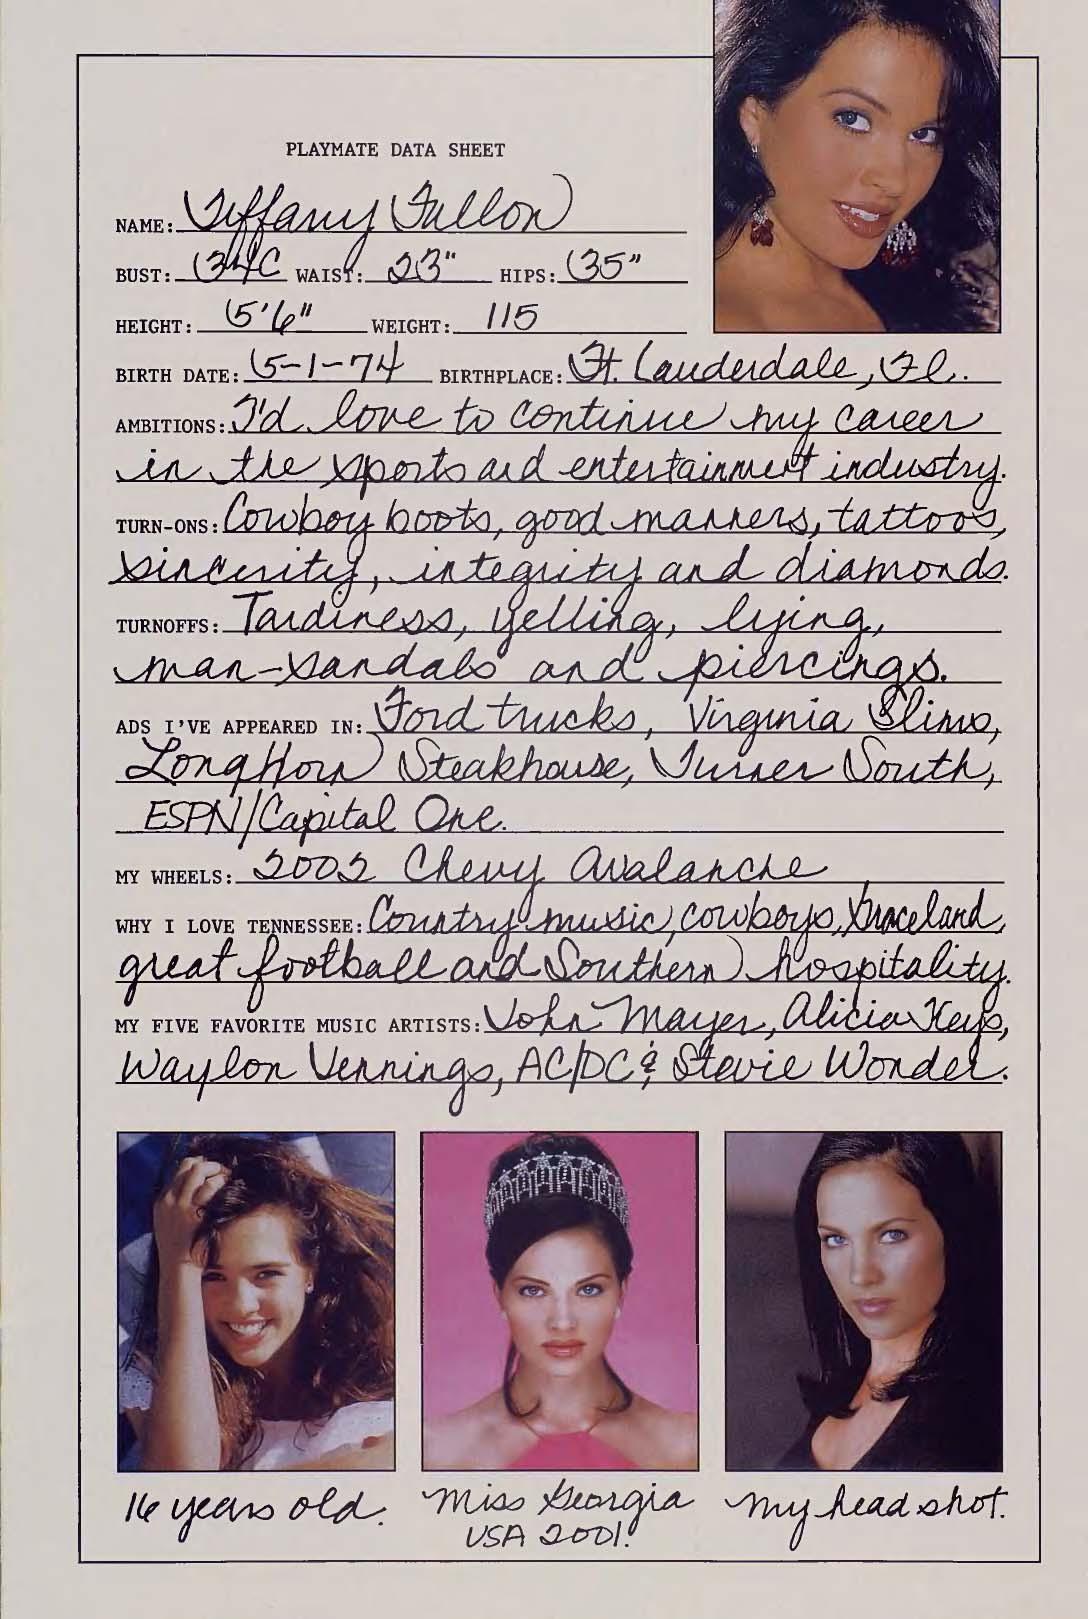 PLAYMATE DATA SHEET
NAME: Tiffany Fallon
BUST: 34C WAIST: 23" HIPS: 35"
HEIGHT: 5'6" WEIGHT: 115
BIRTH DATE: 5-1-74 BIRTHPLACE: Ft. Lauderdale, Fl.
AMBITIONS: I'd love to continue my career
in the sports and entertainment industry.
TURN-ONS: Cowboy boots, good manners, tattoos,
sincerity, integrity and diamonds.
TURNOFFS: Tardiness, yelling, lying,
man-sandals and piercings.
ADS I'VE APPEARED IN: Ford trucks, Virginia Slims,
LongHorn Steakhouse, Turner South,
ESPN/Capital One.
MY WHEELS: 2002 Chevy Avalanche
WHY I LOVE TENNESSEE: Country music, cowboys, Graceland,
great football and Southern hospitality.
MY FIVE FAVORITE MUSIC ARTISTS: John Mayer, Alicia Keys,
Waylon Jennings, AC/DC & Stevie Wonder.
16 years old.
Miss Georgia
USA 2001!
My head shot.